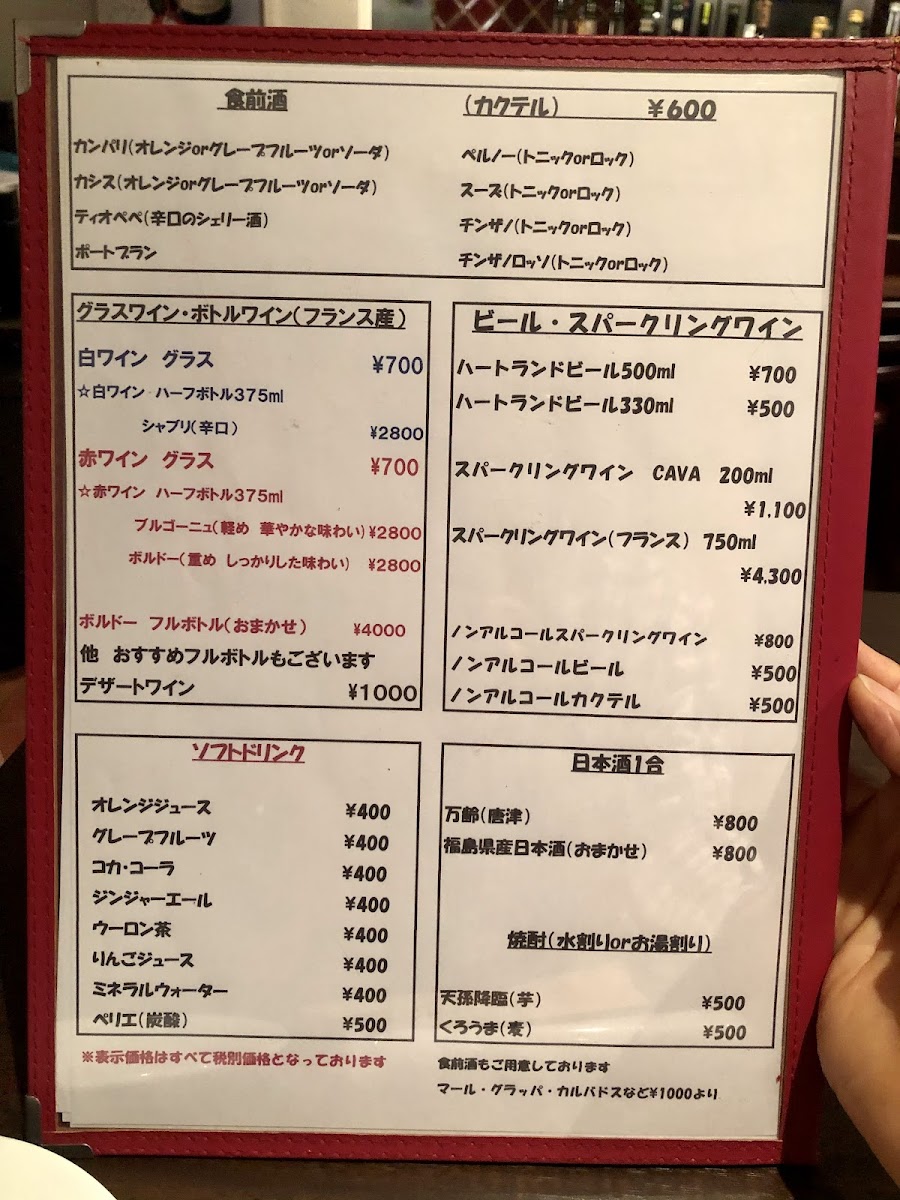 食前酒
(カクテル) ¥600
カンパリ(オレンジorグレープフルーツorソーダ)
カシス(オレンジorグレープフルーツorソーダ)
ティオペペ(辛口のシェリー酒)
ポートブラン
ペルノー(トニックorロック)
スーズ(トニックorロック)
チンザノ(トニックorロック)
チンザノロッソ(トニックorロック)
グラスワイン・ボトルワイン(フランス産)
白ワイン グラス ¥700
☆白ワイン ハーフボトル375ml
シャブリ(辛口) ¥2800
赤ワイン グラス ¥700
☆赤ワイン ハーフボトル375ml
ブルゴーニュ(軽め 華やかな味わい) ¥2800
ボルドー(重め しっかりした味わい) ¥2800
ボルドー フルボトル(おまかせ) ¥4000
他 おすすめフルボトルもございます
デザートワイン ¥1000
ビール・スパークリングワイン
ハートランドビール500ml ¥700
ハートランドビール330ml ¥500
スパークリングワイン CAVA 200ml
¥1.100
スパークリングワイン(フランス) 750ml
¥4,300
ノンアルコールスパークリングワイン ¥800
ノンアルコールビール ¥500
ノンアルコールカクテル ¥500
ソフトドリンク
オレンジジュース ¥400
グレープフルーツ ¥400
コカ・コーラ ¥400
ジンジャーエール ¥400
ウーロン茶 ¥400
りんごジュース ¥400
ミネラルウォーター ¥400
ペリエ(炭酸) ¥500
※表示価格はすべて税別価格となっております
日本酒1合
万齢(唐津) ¥800
福島県産日本酒(おまかせ) ¥800
焼酎(水割りorお湯割り)
天孫降臨(芋) ¥500
くろうま(麦) ¥500
食前酒もご用意しております
マール・グラッパ・カルバドスなど¥1000より